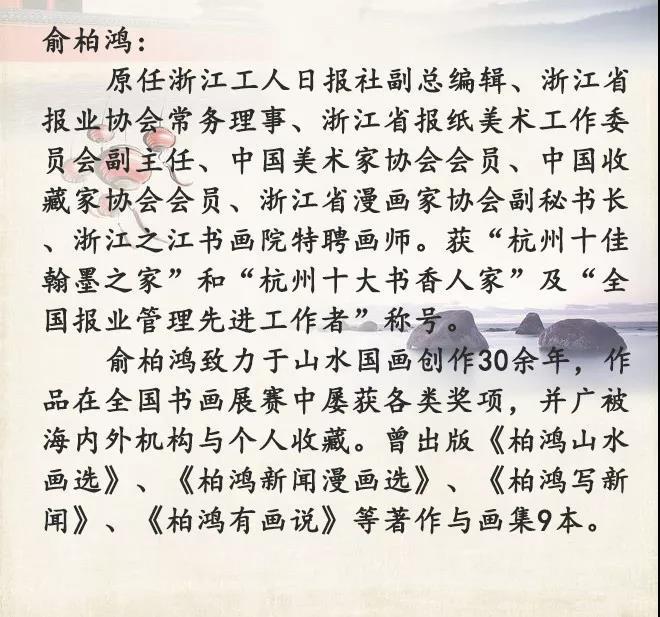 俞柏鸿：
原任浙江工人日报社副总编辑、浙江省
报业协会常务理事、浙江省报纸美术工作委
员会副主任、中国美术家协会会员、中国收
藏家协会会员、浙江省漫画家协会副秘书长
、浙江之江书画院特聘画师。获“杭州十佳
翰墨之家”和“杭州十大书香人家”及“全
国报业管理先进工作者”称号。
俞柏鸿致力于山水国画创作30余年，作
品在全国书画展赛中屡获各类奖项，并广被
海内外机构与个人收藏。曾出版《柏鸿山水
画选》、《柏鸿新闻漫画选》、《柏鸿写新
闻》、《柏鸿有画说》等著作与画集9本。